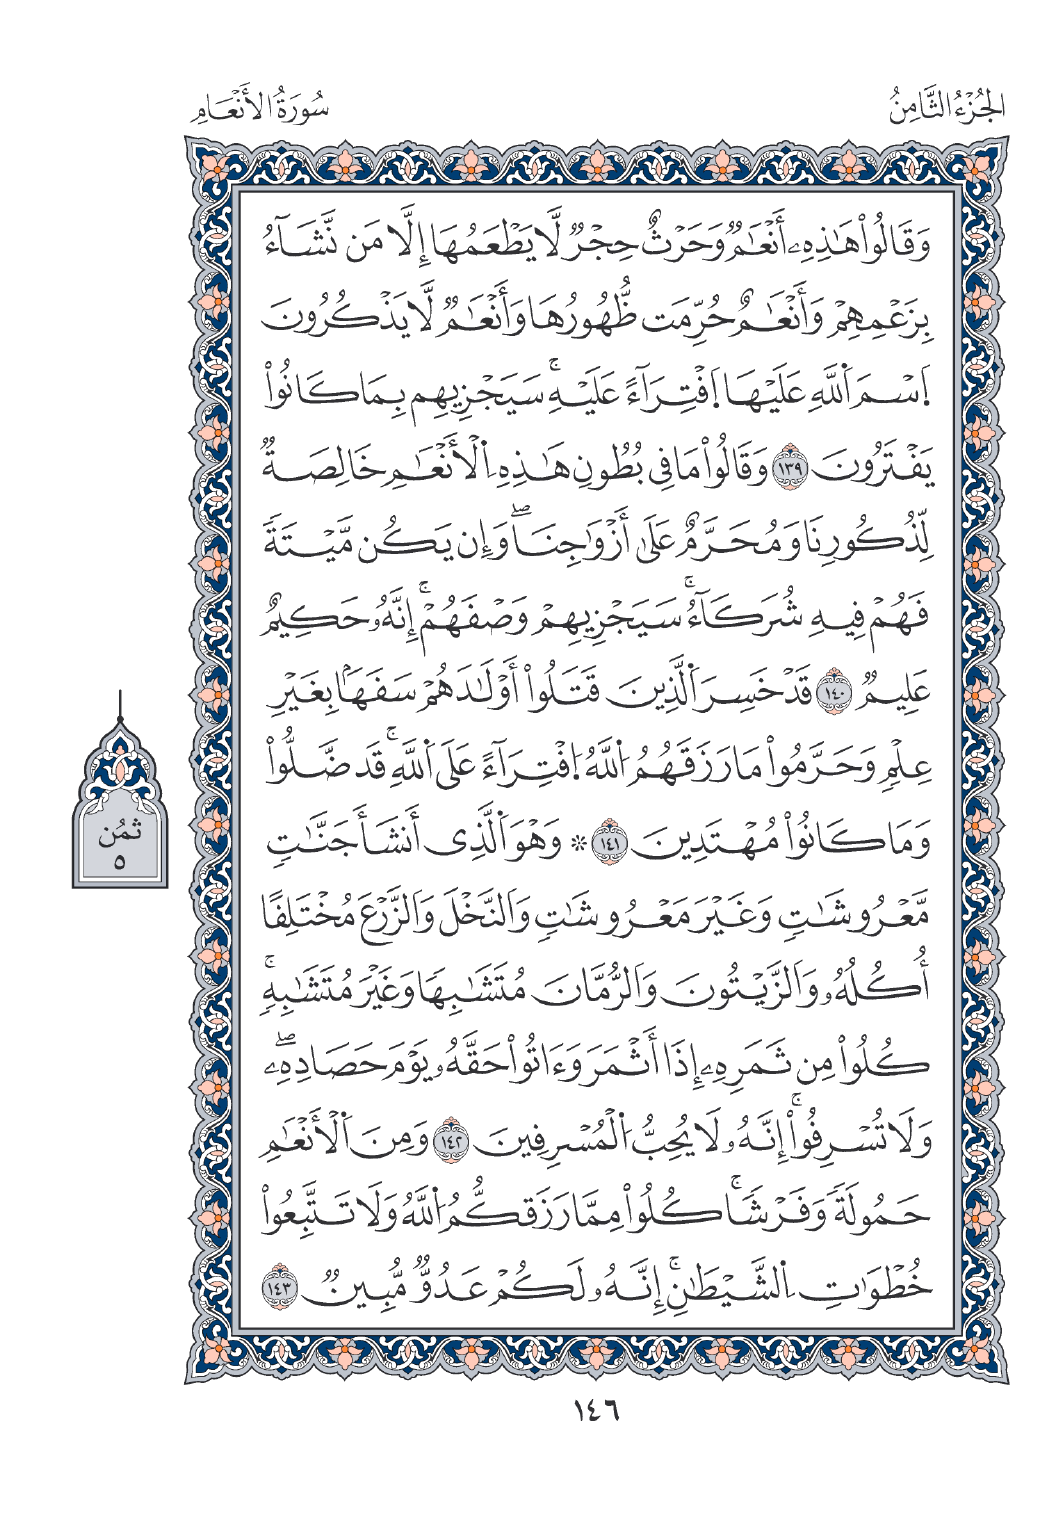 الجُزْءُ الثَّامِنُ
سُورَةُ الأَنْعَامِ
وَقَالُواْ هَٰذِهِۦ أَنْعَٰمٞ وَحَرْثٌ حِجْرٞ لَّا يَطْعَمُهَا إِلَّا مَن نَّشَآءُ
بِزَعْمِهِمْ وَأَنْعَٰمٌ حُرِّمَت ظُّهُورُهَا وَأَنْعَٰمٞ لَّا يَذْكُرُونَ
اَ۪سْمَ اَ۬للَّهِ عَلَيْهَا اَ۪فْتِرَآءً عَلَيْهِۚ سَيَجْزِيهِم بِمَا كَانُواْ
يَفْتَرُونَ ١٣٩ وَقَالُواْ مَا فِي بُطُونِ هَٰذِهِ اِ۬لْأَنْعَٰمِ خَالِصَةٞ
لِّذُكُورِنَا وَمُحَرَّمٌ عَلَىٰ أَزْوَٰجِنَاۖ وَإِن يَكُن مَّيْتَةٗ
فَهُمْ فِيهِ شُرَكَآءُۚ سَيَجْزِيهِمْ وَصْفَهُمْۚ إِنَّهُۥ حَكِيمٌ
عَلِيمٞ ١٤٠ قَدْ خَسِرَ اَ۬لَّذِينَ قَتَلُواْ أَوْلَٰدَهُمْ سَفَهَۢا بِغَيْرِ
عِلْمٖ وَحَرَّمُواْ مَا رَزَقَهُمُ اُ۬للَّهُ اُ۪فْتِرَآءً عَلَى اَ۬للَّهِۚ قَد ضَّلُّواْ
وَمَا كَانُواْ مُهْتَدِينَ ١٤١ ۞ وَهْوَ اَ۬لَّذِي أَنشَأَ جَنَّٰتٖ
مَّعْرُوشَٰتٖ وَغَيْرَ مَعْرُوشَٰتٖ وَالنَّخْلَ وَالزَّرْعَ مُخْتَلِفًا
أُكُلُهُۥ وَالزَّيْتُونَ وَالرُّمَّانَ مُتَشَٰبِهٗا وَغَيْرَ مُتَشَٰبِهٖۚ
كُلُواْ مِن ثَمَرِهِۦ إِذَا أَثْمَرَ وَءَاتُواْ حَقَّهُۥ يَوْمَ حَصَادِهِۦۖ
وَلَا تُسْرِفُواْۚ إِنَّهُۥ لَا يُحِبُّ اُ۬لْمُسْرِفِينَ ١٤٢ وَمِنَ اَ۬لْأَنْعَٰمِ
حَمُولَةٗ وَفَرْشٗاۚ كُلُواْ مِمَّا رَزَقكُّمُ اُ۬للَّهُ وَلَا تَتَّبِعُواْ
خُطْوَٰتِ اِ۬لشَّيْطَٰنِۚ إِنَّهُۥ لَكُمْ عَدُوّٞ مُّبِينٞ ١٤٣
ثمُن
٥
١٤٦